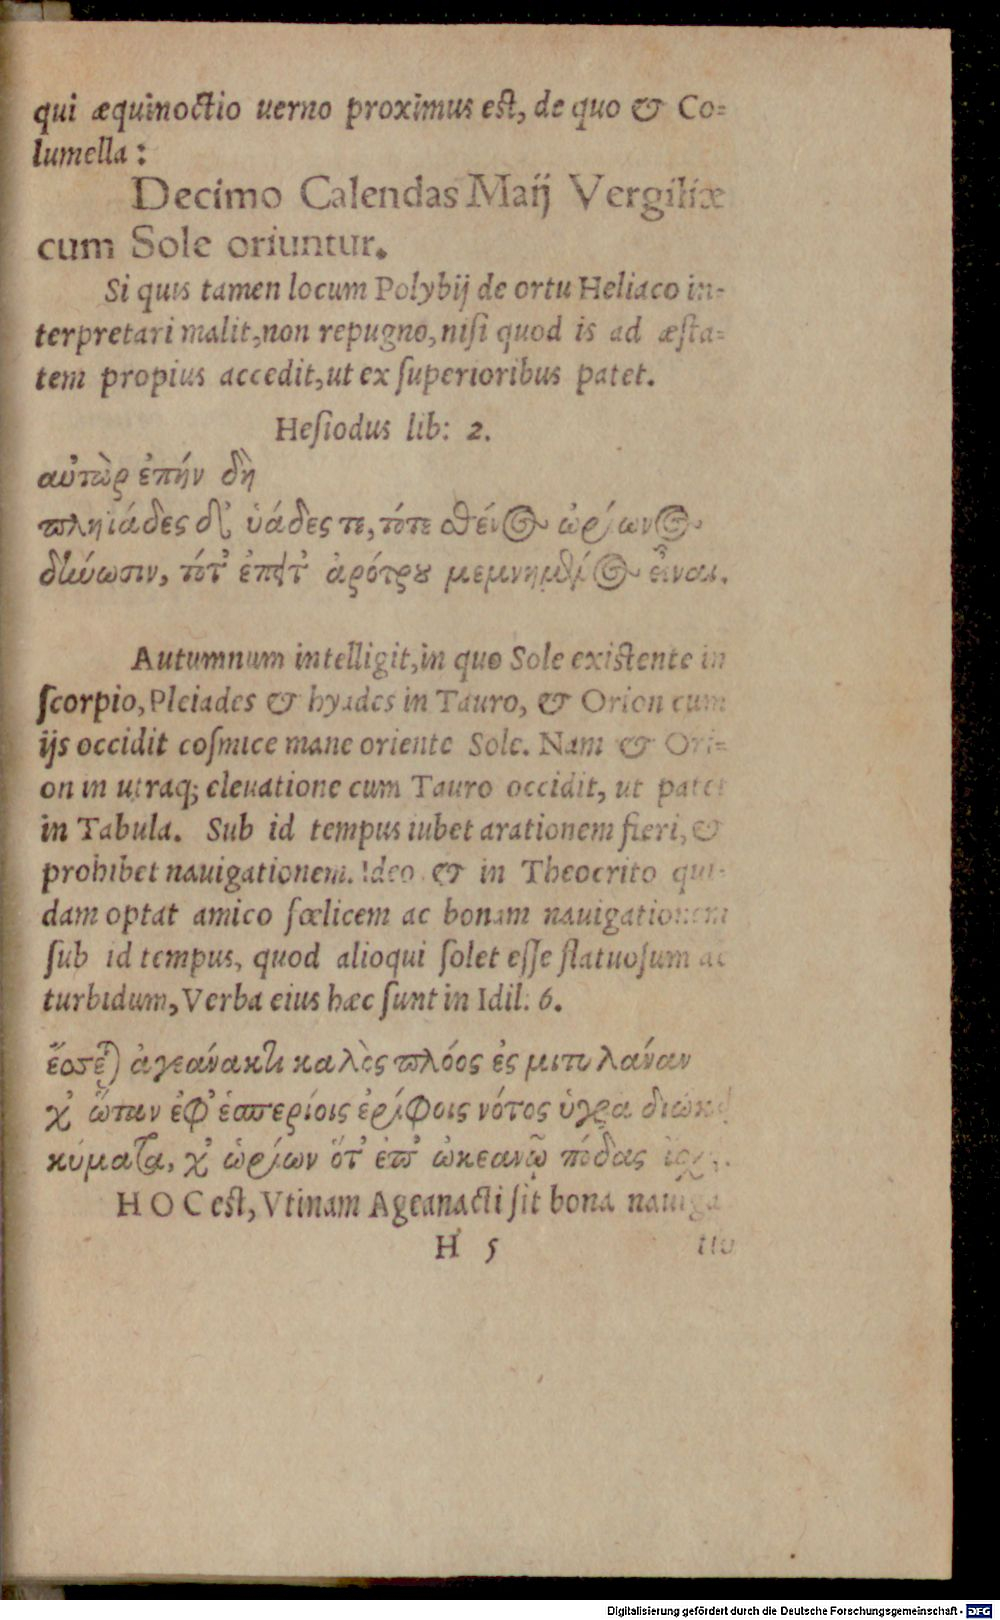 qui æquinoctio uerno proximus est, de quo & Co-
lumella:
Decimo Calendas Maij Vergiliæ
cum Sole oriuntur.
Si quis tamen locum Polybij de ortu Heliaco in-
terpretari malit, non repugno, nisi quod is ad æsta-
tem propius accedit, ut ex superioribus patet.
Hesiodus lib: 2.
αὐτὰρ ἐπήν δὴ
πληϊάδες θ' ὑάδες τε, τότε σθένος ὠρίωνος
δύωσιν, τότ' ἔπειτ' ἀρότρου μεμνημένος εἶναι.
Autumnum intelligit, in quo Sole existente in
scorpio, Pleiades & hyades in Tauro, & Orion cum
ijs occidit cosmice mane oriente Sole. Nam & Ori-
on in utraq; eleuatione cum Tauro occidit, ut patet
in Tabula. Sub id tempus iubet arationem fieri, &
prohibet nauigationem. Ideo & in Theocrito qui-
dam optat amico fœlicem ac bonam nauigationem
sub id tempus, quod alioqui solet esse flatuosum ac
turbidum, Verba eius hæc sunt in Idil. 6.
ἔσσεται ἀγεάνακτι καλὸς πλόος ἐς μιτυλάναν
χ' ὥταν ἐφ' ἑσπερίοις ἐρίφοις νότος ὑγρα διώκῃ
κύματα, χ' ὠρίων ὅτ' ἐπ' ὠκεανῷ πόδας ἰσχει.
HOC est, Vtinam Ageanacti sit bona nauiga
H 5 tio
Digitalisierung gefördert durch die Deutsche Forschungsgemeinschaft - DFG